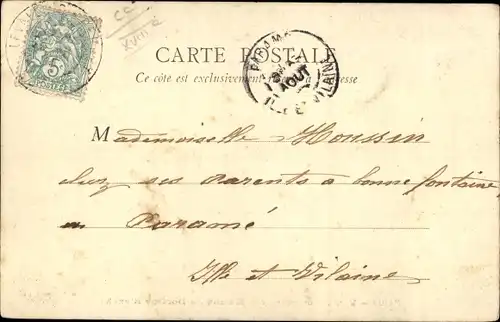 CARTE POSTALE
Ce côté est exclusivement réservé à l'adresse
PARAMÉ
AOUT
ILLE ET VILAINE
5
Mademoiselle Houssin
chez ses parents à bonne fontaine
en Paramé
Ille et Vilaine